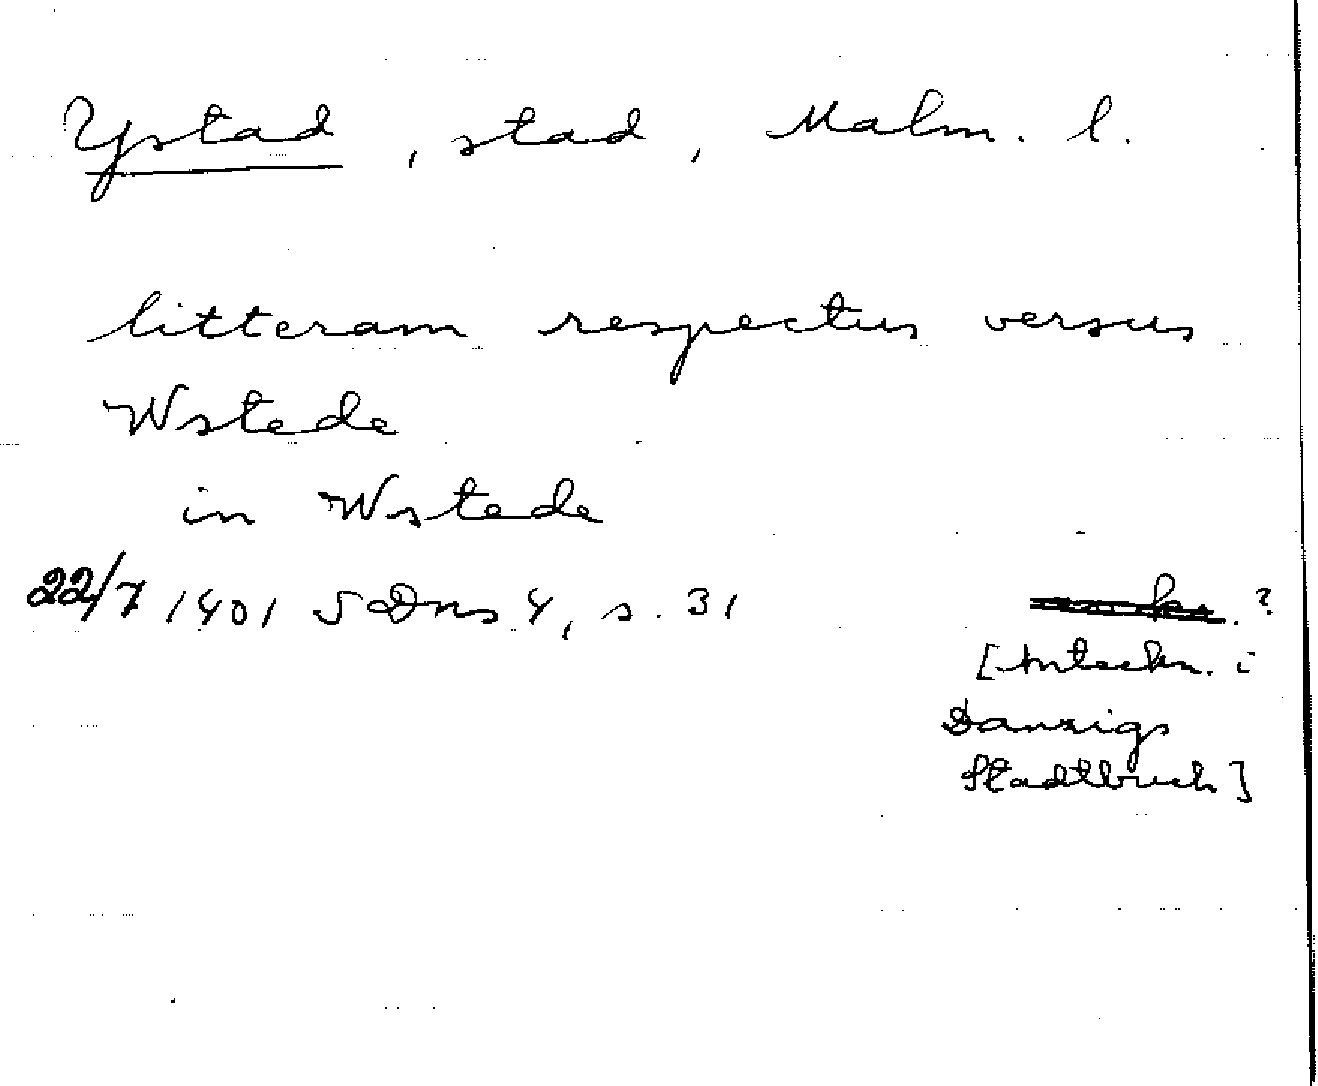 Ystad, stad, Malm. l.
litteram respectus versus
Wstede
in Wstede
22/7 1401 SDns 4, s. 31
?
[Anteckn. i
Danzigs
Stadtbuch]